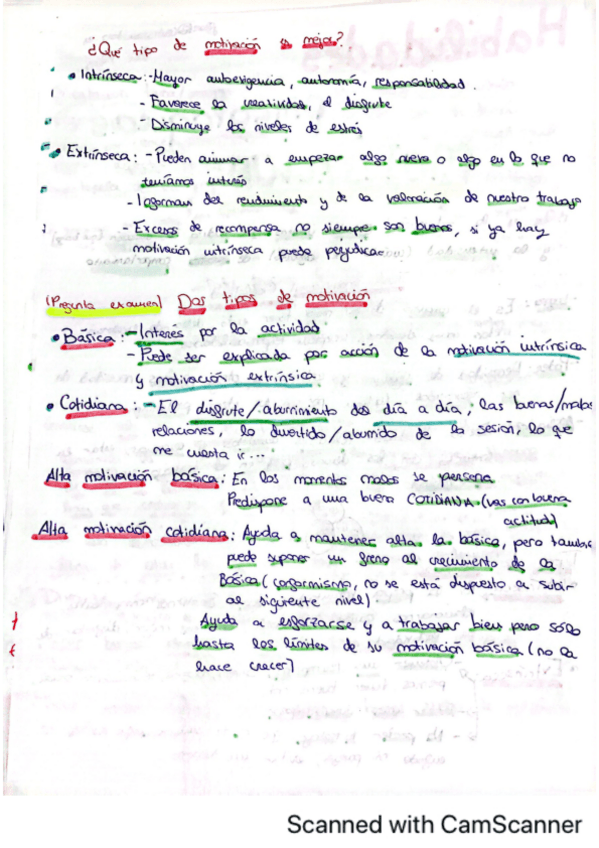 ¿Qué tipo de motivación es mejor?
• Intrínseca: - Mayor autoexigencia, autonomía, responsabilidad.
- Favorece la creatividad, el disfrute
- Disminuye los niveles de estrés
• Extrínseca: - Pueden animar a empezar algo nuevo o algo en lo que no
teníamos interés
- Informan del rendimiento y de la valoración de nuestro trabajo
- Excesos de recompensa no siempre son buenos, si ya hay
motivación intrínseca puede perjudicar
(Pregunta examen) Dos tipos de motivación
• Básica: - Interés por la actividad
- Puede ser explicada por acción de la motivación intrínseca
y motivación extrínsica
• Cotidiana: - El disfrute/aburrimiento del día a día, las buenas/malas
relaciones, lo divertido/aburrido de la sesión, lo que
me cuesta ir...
Alta motivación básica: En los momentos malos se persona
Predispone a una buena COTIDIANA (vas con buena
actitud)
Alta motivación cotidiana: Ayuda a mantener alta la básica, pero también
puede suponer un freno al crecimiento de la
Básica (conformismo, no se está dispuesto a subir
al siguiente nivel)
Ayuda a esforzarse y a trabajar bien pero sólo
hasta los límites de su motivación básica (no la
hace crecer)
Scanned with CamScanner